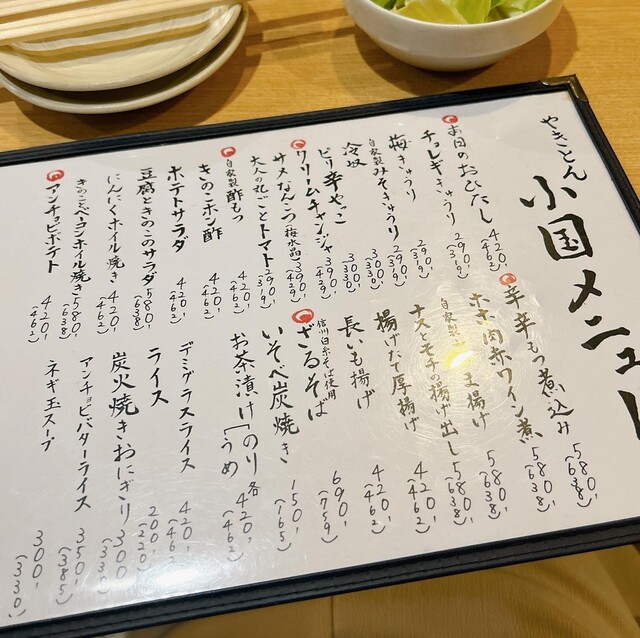 やきとん
小国メニュー
お日のおひたし 420- (462)
チョレギきゅうり 290- (319)
梅きゅうり 290- (319)
自家製みそきゅうり 290- (319)
冷奴 300- (330)
ピリ辛やっこ 300- (330)
クリームチャンジャ 390- (429)
サメなんこつ(梅水晶) 390- (429)
大人の丸ごとトマト 290- (319)
自家製酢もつ 420- (462)
きのこポン酢 420- (462)
ポテトサラダ 420- (462)
豆腐ときのこのサラダ 580- (638)
にんにくホイル焼き 420- (462)
きのこベーコンホイル焼き 580- (638)
アンチョビポテト 420- (462)
辛辛もつ煮込み 580- (638)
ホホ肉赤ワイン煮 580- (638)
自家製 ま揚げ 580- (638)
ナスとモチの揚げ出し 580- (638)
揚げたて厚揚げ 420- (462)
長いも揚げ 420- (462)
信州白糸そば使用
ざるそば 690- (759)
いそべ炭焼き 150- (165)
お茶漬け[のり うめ 各420- (462)
デミグラスライス 420- (462)
ライス 200- (220)
炭火焼きおにぎり 300- (330)
アンチョビバターライス 350- (385)
ネギ玉スープ 300- (330)